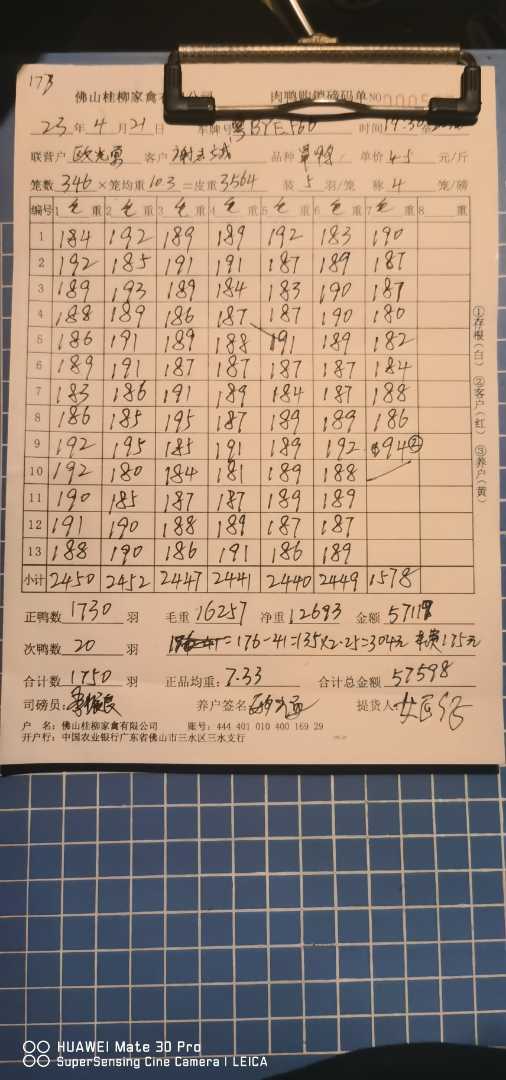 173
佛山桂柳家禽有限公司 肉鸭购销磅码单 NO
23 年 4 月 21 日 车牌号 粤BYE566 时间 19:30
联营户 欧光勇 客户 品种 单价 4.5 元/斤
笼数 346 × 笼均重 10.3 = 皮重 3564 装 5 羽/笼 称 4 笼/磅
编号 1 毛 重 2 毛 重 3 毛 重 4 毛 重 5 毛 重 6 毛 重 7 毛 重 8 重
1 184 192 189 189 192 183 190
2 192 185 191 191 187 189 187
3 189 193 189 184 183 190 187
4 188 189 186 187 187 190 180
5 186 191 189 188 191 189 182
6 189 191 187 187 187 187 184
7 183 186 191 189 184 187 188
8 186 185 195 187 189 189 186
9 192 195 185 191 189 192 94②
10 192 180 184 181 189 188
11 190 185 187 187 189 189
12 191 190 188 189 187 187
13 188 190 186 191 186 189
小计 2450 2452 2447 2441 2440 2449 1578
①存根(白) ②客户(红) ③养户(黄)
正鸭数 1730 羽 毛重 16257 净重 12693 金额 57118
次鸭数 20 羽 =176-41=135×2.25=304元 175元
合计数 1750 羽 正品均重: 7.33 合计总金额 57598
司磅员: 养户签名 提货人
户 名: 佛山桂柳家禽有限公司 账号: 444 401 010 400 169 29
开户行: 中国农业银行广东省佛山市三水区三水支行
HUAWEI Mate 30 Pro
SuperSensing Cine Camera | LEICA